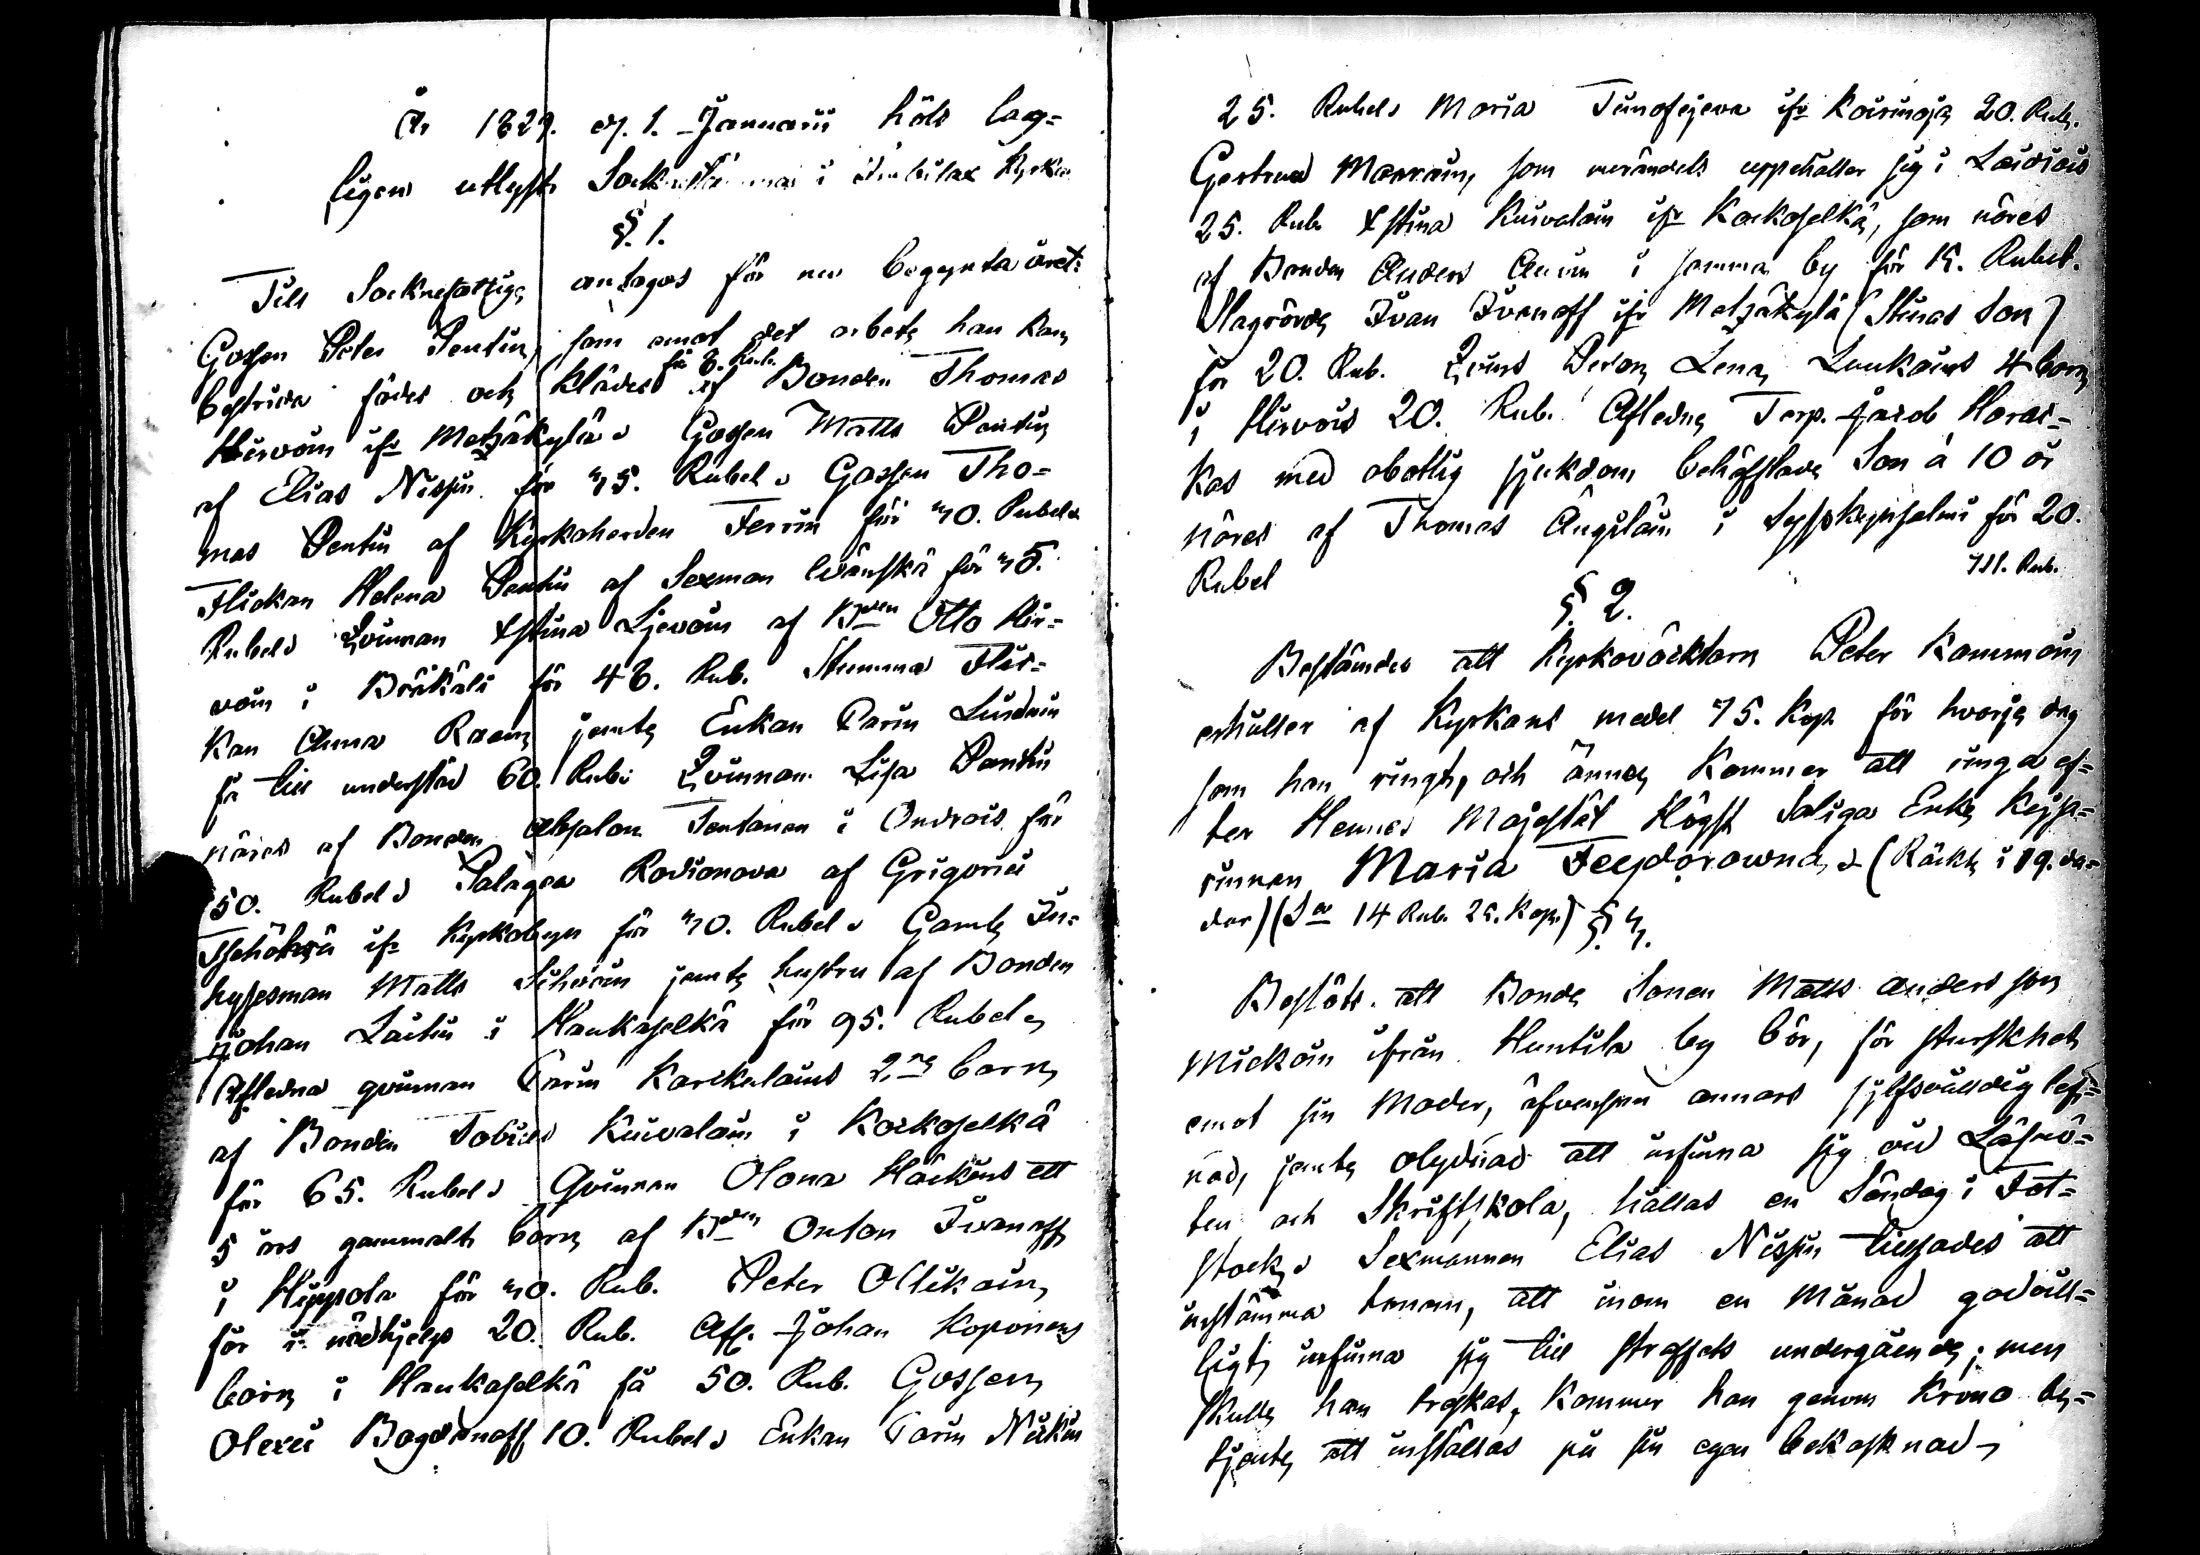 År 1829. d. 1. Januarii höls lag=
ligen utlyst Sockenstämma i Imbilax Kyrka
§. 1.
Till Sockne fattige antagos för nu begynta året:
Gossen Peter Pentin, som emot det arbete han kan
för 8. Rub.
bestrida födes och klädes af Bonden Thomas
Hirvoin ifr Metzäkylä. Gossen Matts Pentin
af Elias Nissin för 45. Rubel. Gossen Tho=
mas Pentin af Kyrkoherden Ferrin för 40. Rubel.
Flickan Helena Pentin af Sexman för 45.
Rubel. Qvinnan Xstina af Bden Otto Hir=
voin i för 48. Rub. Stumma Flic=
kan Anna jemte Enkan Carin
få till understöd 60. Rub. Qvinnan Lisa Pentin
näres af Bonden Absalon Tontonen i för
50. Rubel. Palagea Rodionova af Grigorii
ifr Kyrkobyn för 40. Rubel. Gamle In=
hysesman Matts Sihvoin jemte hustru af Bonden
Johan Laitin i Haukaselkä för 95. Rubel.
Afledna qvinnan Carin Karikulains 2ne barn
af Bonden Tobias Kuivalain i Kockoselkä
för 65. Rubel. Qvinnan Olona Häckins ett
5 års gammalt barn af Bden Onton Ivanoff
i Hippola för 40. Rub. Peter Ollikain,
för i nödhjelp 20. Rub. Afl. Johan Koponens
barn i Haukaselkä få 50. Rub. Gossen
Olexei Bogdanoff 10. Rubel. Enkan Carin
25. Rubel Maria Timofejewa ifr Koirinoja 20. Rub.
Gertrud som merändels uppehåller sig i
25. Rub. Xstina Kuivalain ifr Kockoselkä, som näres
af Bonden Anders i samma by för 15. Rubel.
Ivan Ivanoff ifr Metzäkylä (Stinas Son)
för 20. Rub. Lena Luukains 4 barn
i 20. Rub. Afledne Torp. Jacob
kas med obotlig sjukdom behäftade Son à 10 år
näres af Thomas i för 20.
Rubel
711. Rub.
§ 2.
Bestämdes att Kyrkoväcktarn Peter Kammoin
erhåller af Kyrkans medel 75. Kop för hvarje dag
som han ringt, och ännu kommer att ringa ef=
ter Hennes Majestät Högst Saliga Enke Kejsa=
rinnan Maria Feodorowna. (Räckte i 19. da=
dar) (Sa 14 Rub. 25. Kop.) §. 3.
Beslöts att Bonde Sonen Matts Andersson
Mickoin ifrån Huntila by bör, för sturskhet
emot sin Moder, äfvensom annars sjelfsvåldig lef=
nad, jemte olydnad att infinna sig vid Läsmö=
ten och Skriftskola, hållas en Söndag i Fot=
stock. Sexmannen Elias Nissin tillsades att
instämma honom, att inom en Månad godvill=
ligt infinna sig till straffets undergående; men
skulle han treskas, kommer han genom Krono be=
tjente att inställas på sin egen bekostnad.